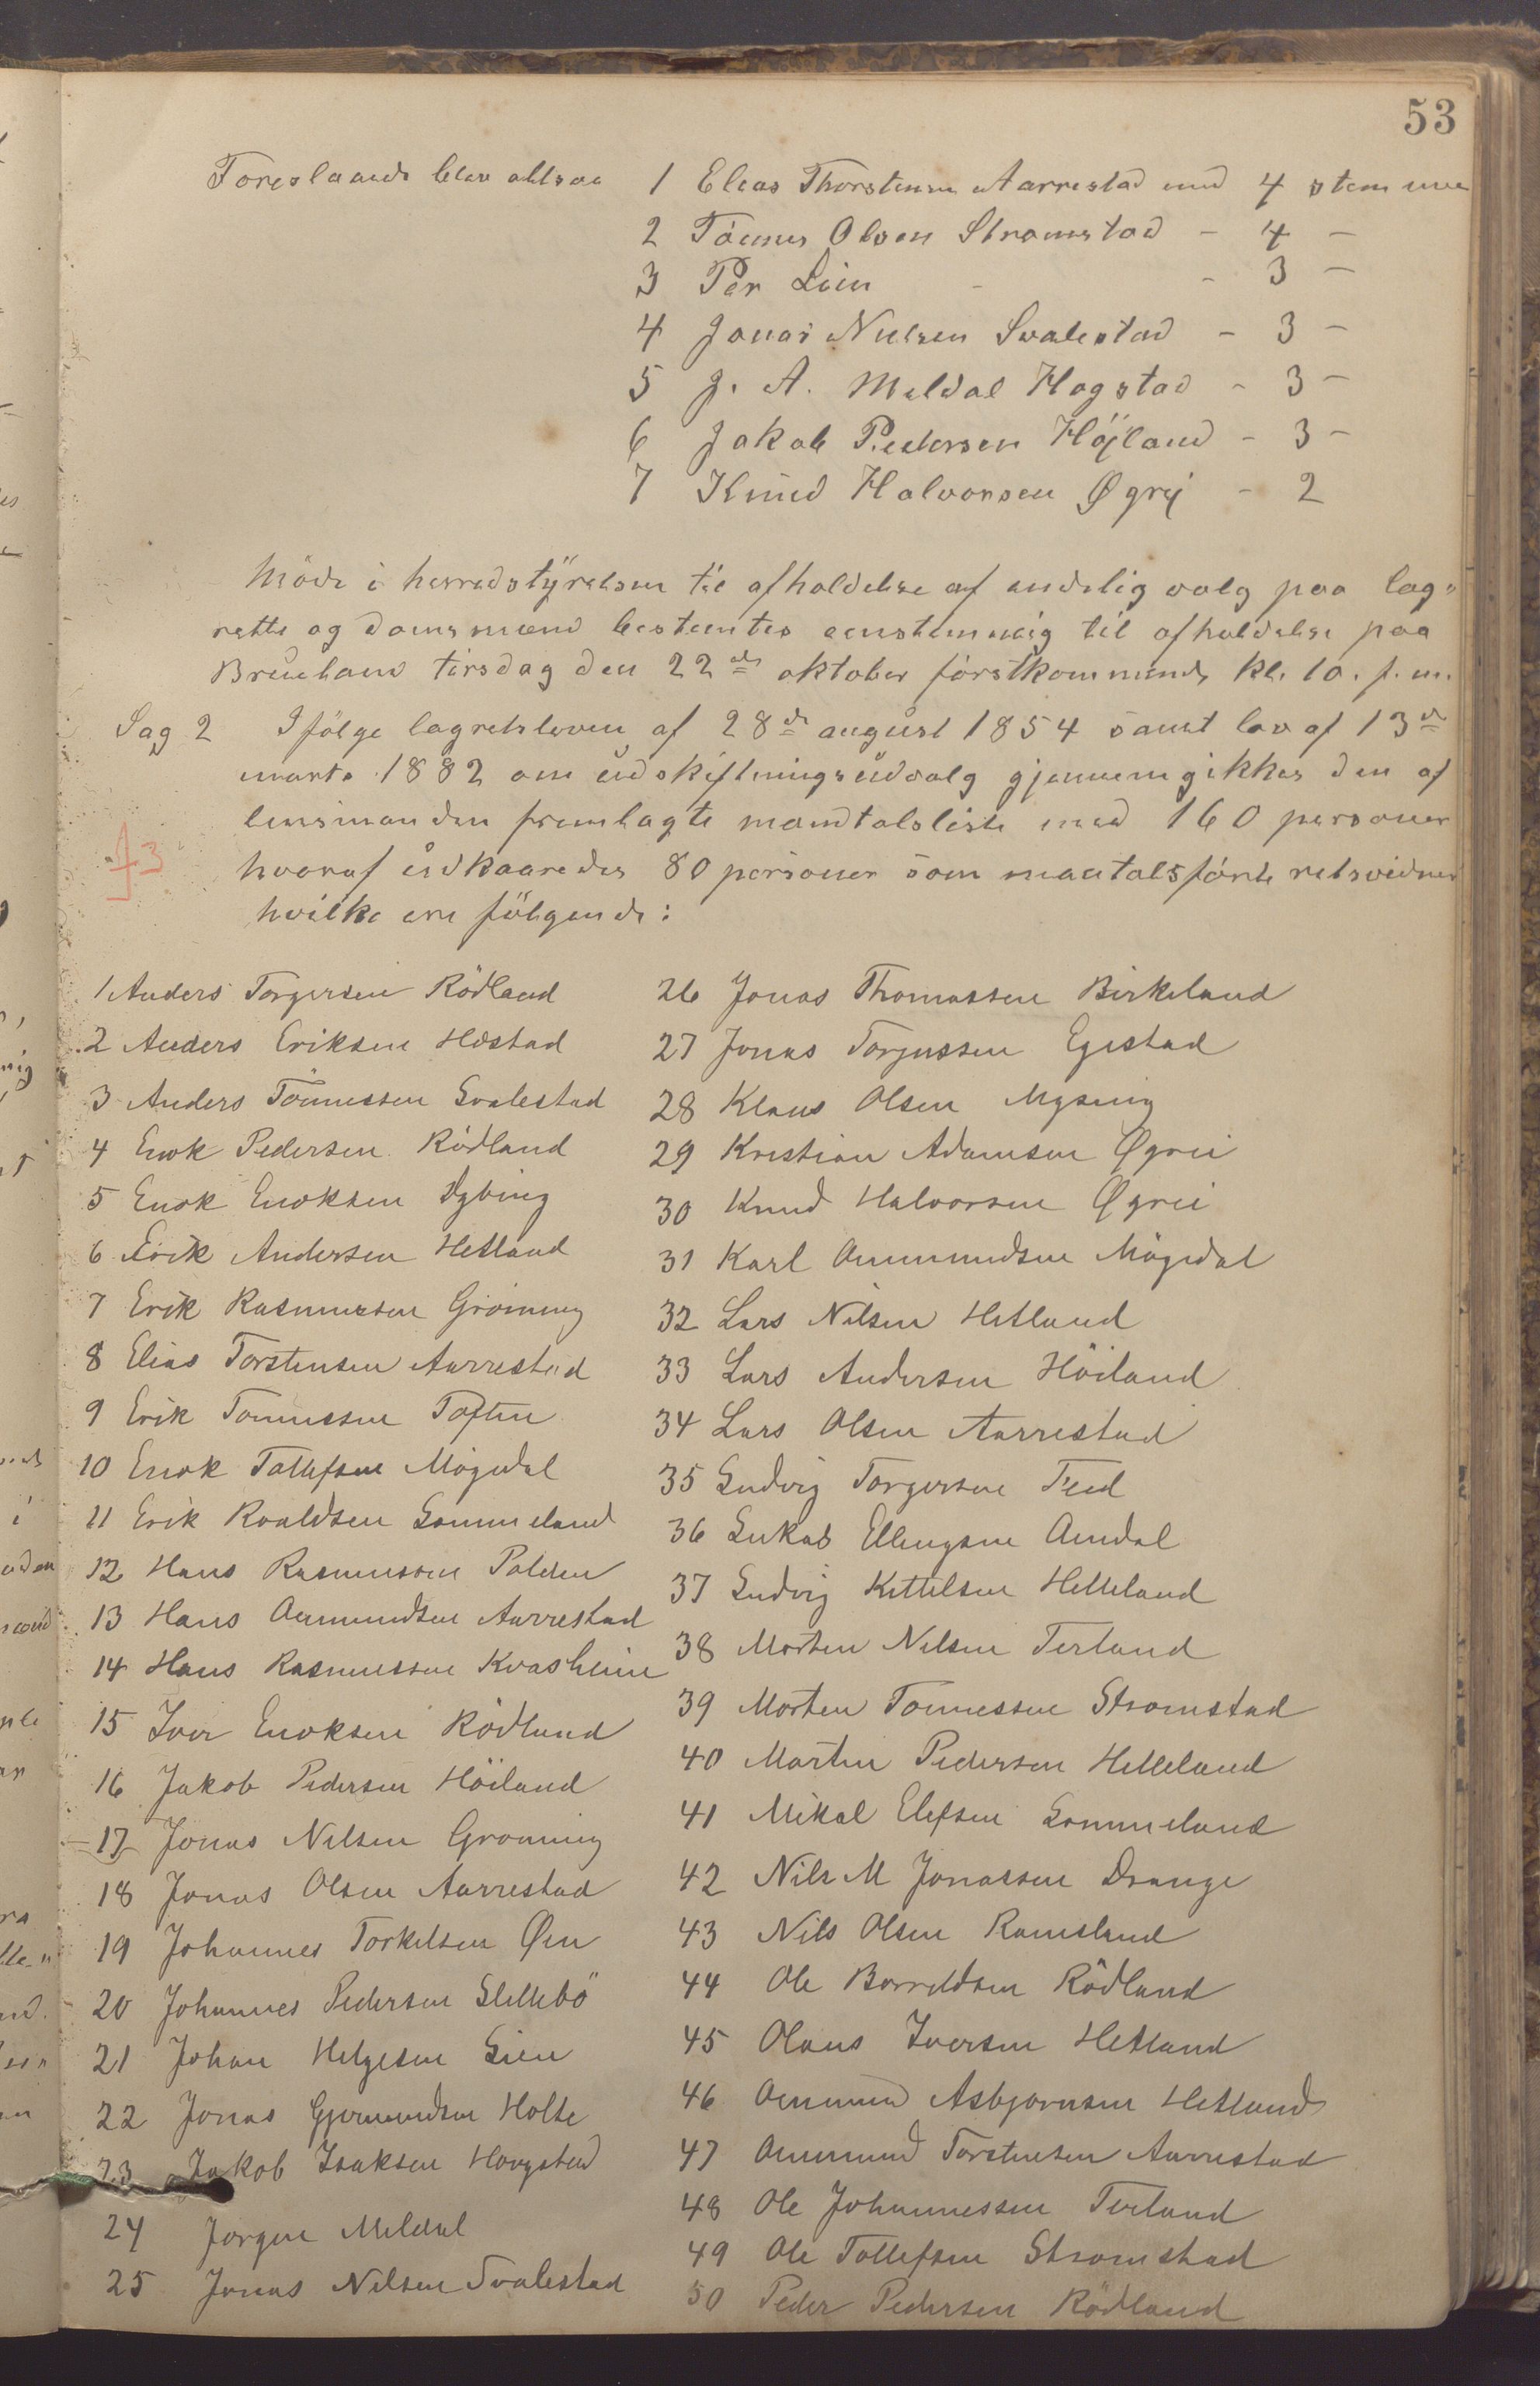 53
Foreslaaede blev altsaa 1 Elias Thorstensen Aarrestad med 4 stemmer
2 Tönnes Olsen Stromstad – 4 –
3 Per Lien – – 3 –
4 Jonas Nielsen Svalestad – 3 –
5 J. A. Meldal Hogstad – 3 –
6 Jakob Pedersen Höjland – 3 –
7 Knud Halvorsen Øgrej – 2
Möde i herredstyrelsen til afholdelse af endelig valg paa lag-
rette og domsmænd bestemtes eenstemmig til afholdelse paa
tirsdag den 22de oktober förstkommende kl. 10. f. m.
Sag 2 Ifölge lagretsloven af 28de august 1854 samt lov af 13de
marts 1882 om udskiftningsudvalg gjennemgikkes den af
lensmanden fremlagte mandtalsliste med 160 personer
f3
hvoraf udkaaredes 80 personer som mantalsförte retsvidner
hvilke ere fölgende:
1 Anders Torgersen Rödland
2 Anders Eriksen Hostad
3 Anders Tönnessen Svalestad
4 Enok Pedersen Rödland
5 Enok Enoksen
6 Erik Andersen Hetland
7 Erik Rasmussen Gröning
8 Elias Torstensen Aarrestad
9 Erik Tonnessen Toften
10 Enok Tollefsen Mögedal
11 Erik Roaldsen Sommeland
12 Hans Rasmussen Polden
13 Hans Aamundsen Aarrestad
14 Hans Rasmussen Kvasheim
15 Iver Enoksen Rödland
16 Jakob Pedersen Höiland
17 Jonas Nilsen Groning
18 Jonas Olsen Aarrestad
19 Johannes Torkelsen Øen
20 Johannes Pedersen Slettebö
21 Johan Helgesen Lien
22 Jonas Gjermundsen Holte
23 Jakob Isaksen Hovgstad
24 Jorgen Meldal
25 Jonas Nilsen Svalestad
26 Jonas Thomassen Birkeland
27 Jonas Torjussen Egestad
28 Klaus Olsen Mysing
29 Kristian Adamsen Øgrei
30 Knud Halvorsen Øgrei
31 Karl Ommundsen Mögedal
32 Lars Nilsen Hetland
33 Lars Andersen Höiland
34 Lars Olsen Aarrestad
35 Ludvig Torgersen Feed
36 Lukas Ellingsen Omdal
37 Ludvig Kittelsen Helleland
38 Morten Nilsen Terland
39 Morten Tonnessen Stromstad
40 Martin Pedersen Helleland
41 Mikal Elefsen Sommeland
42 Nils M Jonassen Drange
43 Nils Olsen Ramsland
44 Ole Borreldsen Rödland
45 Olaus Iversen Hetland
46 Ommund Asbjornsen Hetland
47 Ommund Torstensen Aarrestad
48 Ole Johannessen Terland
49 Ole Tollefsen Stromstad
50 Peder Pedersen Rödland